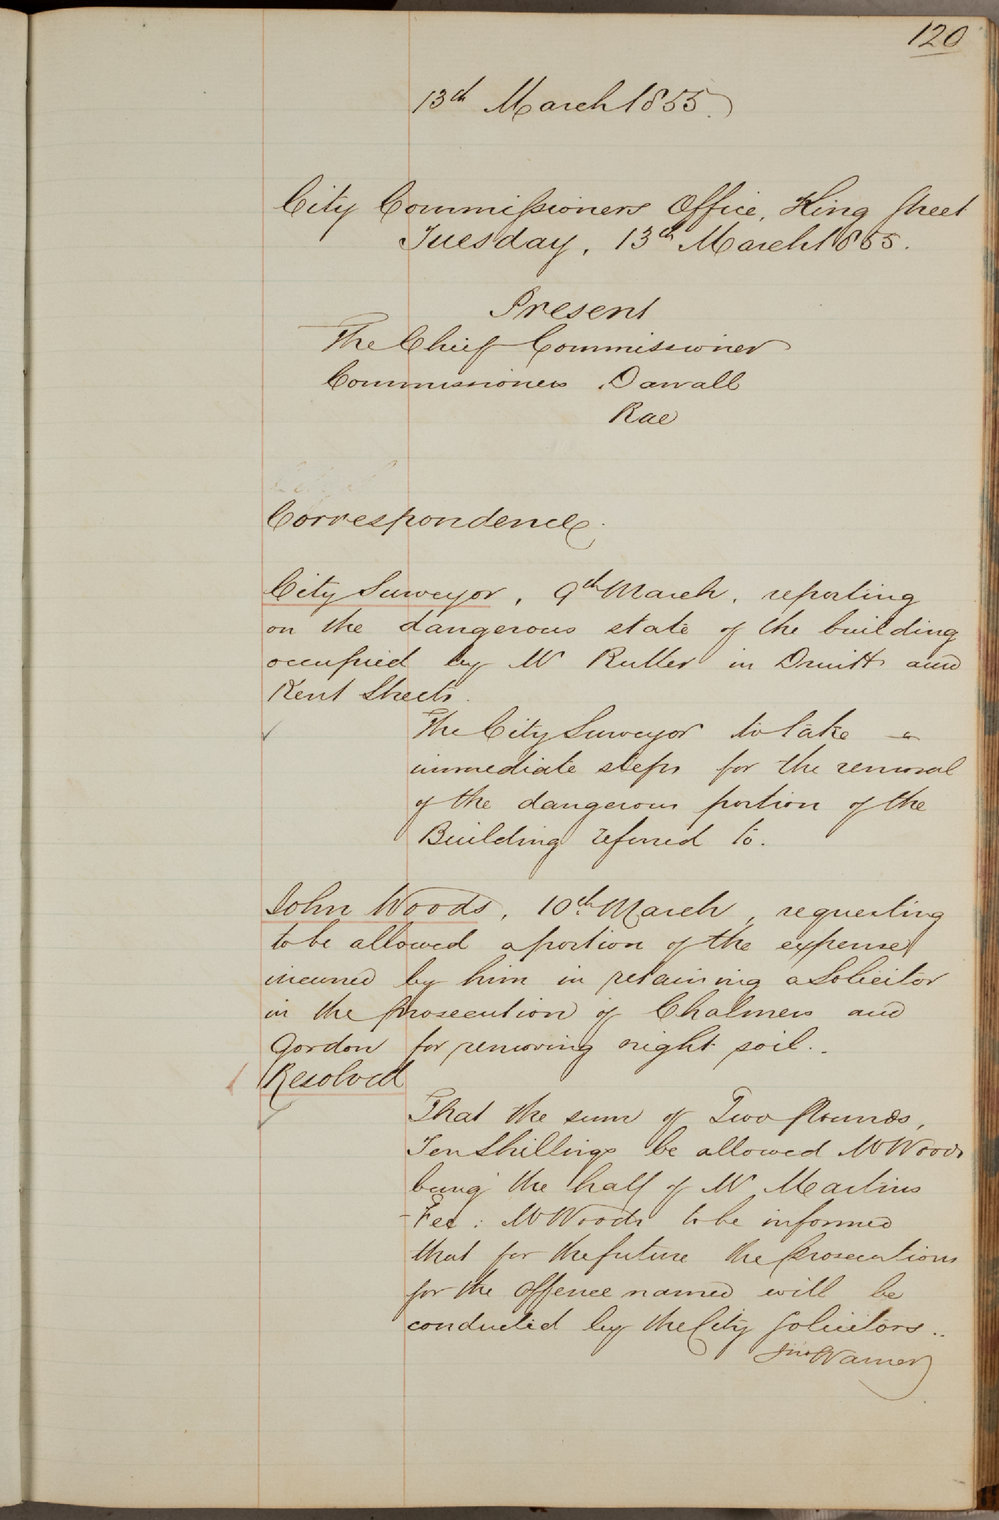 120
13th March 1855.
City Commissioners Office, King Street
Tuesday, 13th March 1855.
Present
The Chief Commissioner
Commissioners Darvall
Rae
Correspondence.
City Surveyor, 9th March, reporting
on the dangerous state of the building
occupied by Mr Rutter in Druitt and
Kent Streets.
The City Surveyor to take
immediate steps for the removal
of the dangerous portion of the
Building referred to.
John Woods, 10th March, requesting
to be allowed a portion of the expense
incurred by him in retaining a Solicitor
in the prosecution of Chalmers and
Gordon for removing night soil..
Resolved
That the sum of Two Pounds,
Ten Shillings be allowed Mr Woods
being the half of Mr Martins
Fee: Mr Woods to be informed
that for the future the prosecutions
for the offence named will be
conducted by the City Solicitors..
Warner